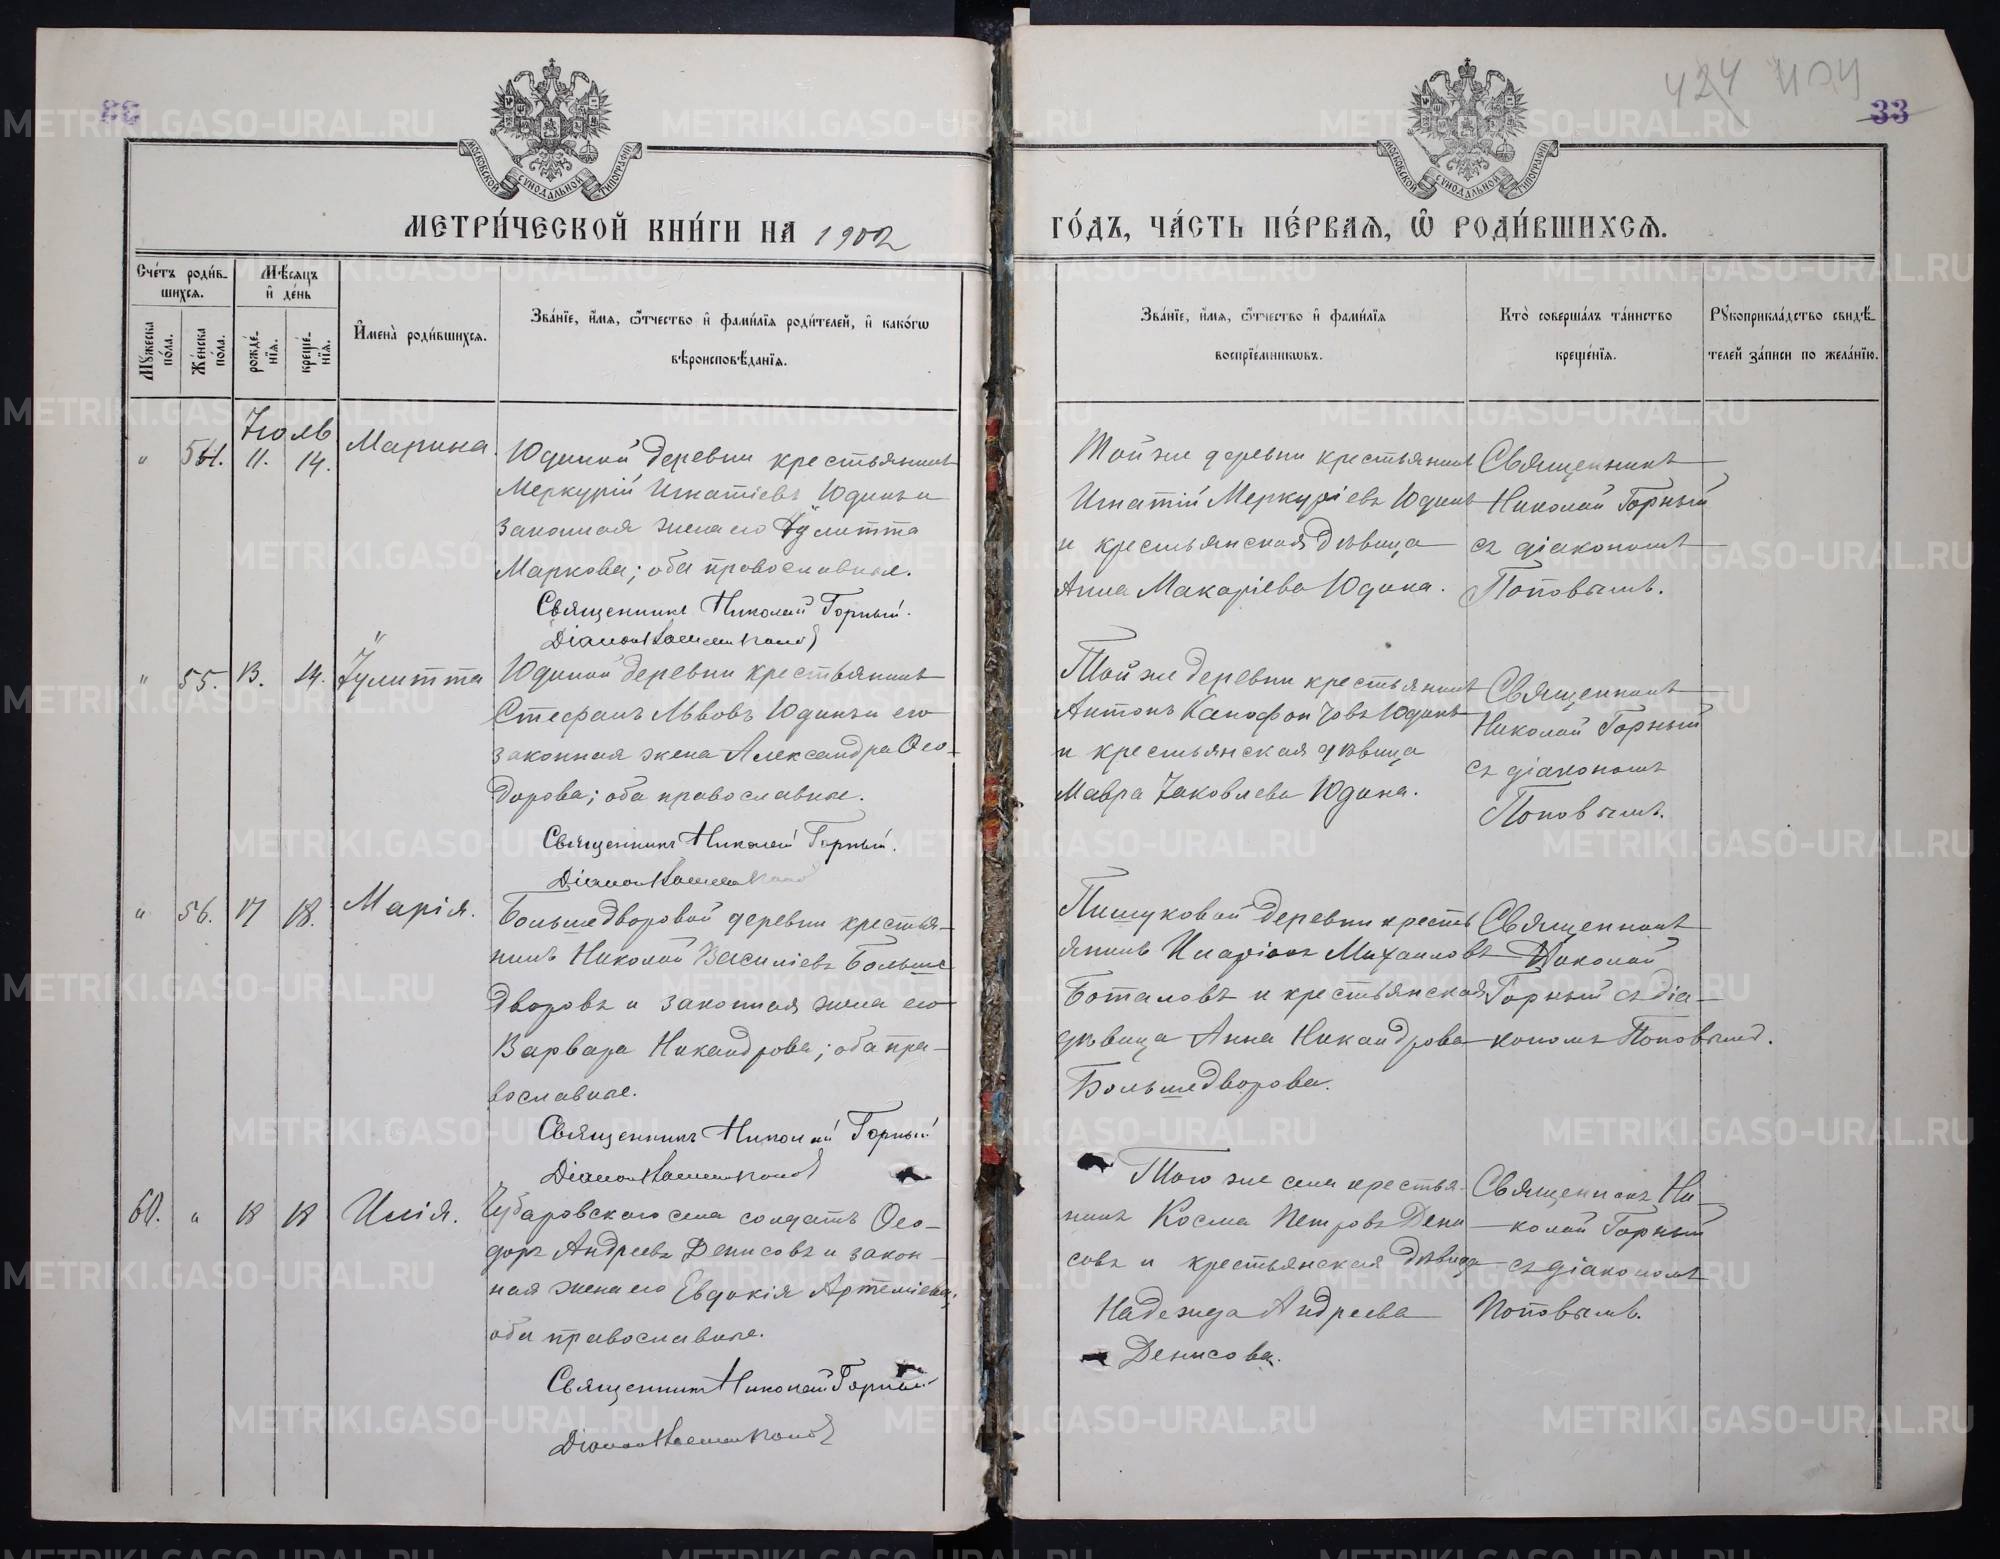 424
33
МОСКОВСКОЙ СѴНОДАЛЬНОЙ ТИПОГРАФІИ
МОСКОВСКОЙ СѴНОДАЛЬНОЙ ТИПОГРАФІИ
МЕТРИ́ЧЕСКОЙ КНИ́ГИ НА 1902
ГО́ДЪ, ЧА́СТЬ ПЕ́РВАѦ, Ѡ҆ РОДИ́ВШИХСѦ.
Сче́тъ роди́в-
шихсѧ.
Мꙋ́жеска по́ла.
Же́нска по́ла.
Мѣ́сѧцъ
и҆ де́нь
рожде́-
нїѧ.
креще́-
нїѧ.
И҆мена̀ роди́вшихсѧ.
Зва́нїе, и҆́мѧ, ѻ҆́тчество и҆ фами́лїѧ роди́телей, и҆ како́гѡ
вѣроисповѣ́данїѧ.
Зва́нїе, и҆́мѧ, ѻ҆́тчество и҆ фами́лїѧ
воспрїе́мникѡвъ.
Кто̀ соверша́лъ та́инство
креще́нїѧ.
Рꙋкоприкла́дство свидѣ́-
телей за́писи по жела́нїю.
Іюль
" 54. 11. 14. Марина.
Юдиной деревни крестьянинъ
Меркурій Игнатіевъ Юдинъ и
законная жена его Іулитта
Маркова; оба православные.
Священникъ Николай Горный.
Тойже деревни крестьянинъ
Игнатій Меркуріевъ Юдинъ
и крестьянская дѣвица
Анна Макаріева Юдина.
Священникъ
Николай Горный
съ діакономъ
Поповымъ.
" 55. 13. 14. Іулитта
Юдиной деревни крестьянинъ
Стефанъ Львовъ Юдинъ и его
законная жена Александра Ѳео-
дорова; оба православные.
Священникъ Николай Горный.
Той же деревни крестьянинъ
Антонъ Ксенофонтовъ Юдинъ
и крестьянская дѣвица
Мавра Іаковлева Юдина.
Священникъ
Николай Горный
съ діакономъ
Поповымъ.
" 56. 17 18. Марія.
Большедворовой деревни крестья-
нинъ Николай Василіевъ Больше
дворовъ и законная жена его
Варвара Никандрова; оба пра-
вославные.
Священникъ Николай Горный
Пишуковой деревни кресть
янинъ Иларіонъ Михаиловъ
Боталовъ и крестьянская
дѣвица Анна Никандрова
Большедворова.
Священникъ
Николай
Горный съ діа-
кономъ Поповымъ.
60. " 18 18 Илія.
Чубаровского села солдатъ Ѳео-
доръ Андреевъ Денисовъ и закон-
ная жена его Евдокія Артеміева;
оба православные.
Священникъ Николай Горный
Того же села крестья-
нинъ Косма Петровъ Дени
совъ и крестьянская дѣвица
Надежда Андреева
Денисова.
Священникъ Ни-
колай Горный
съ діакономъ
Поповымъ.
METRIKI.GASO-URAL.RU